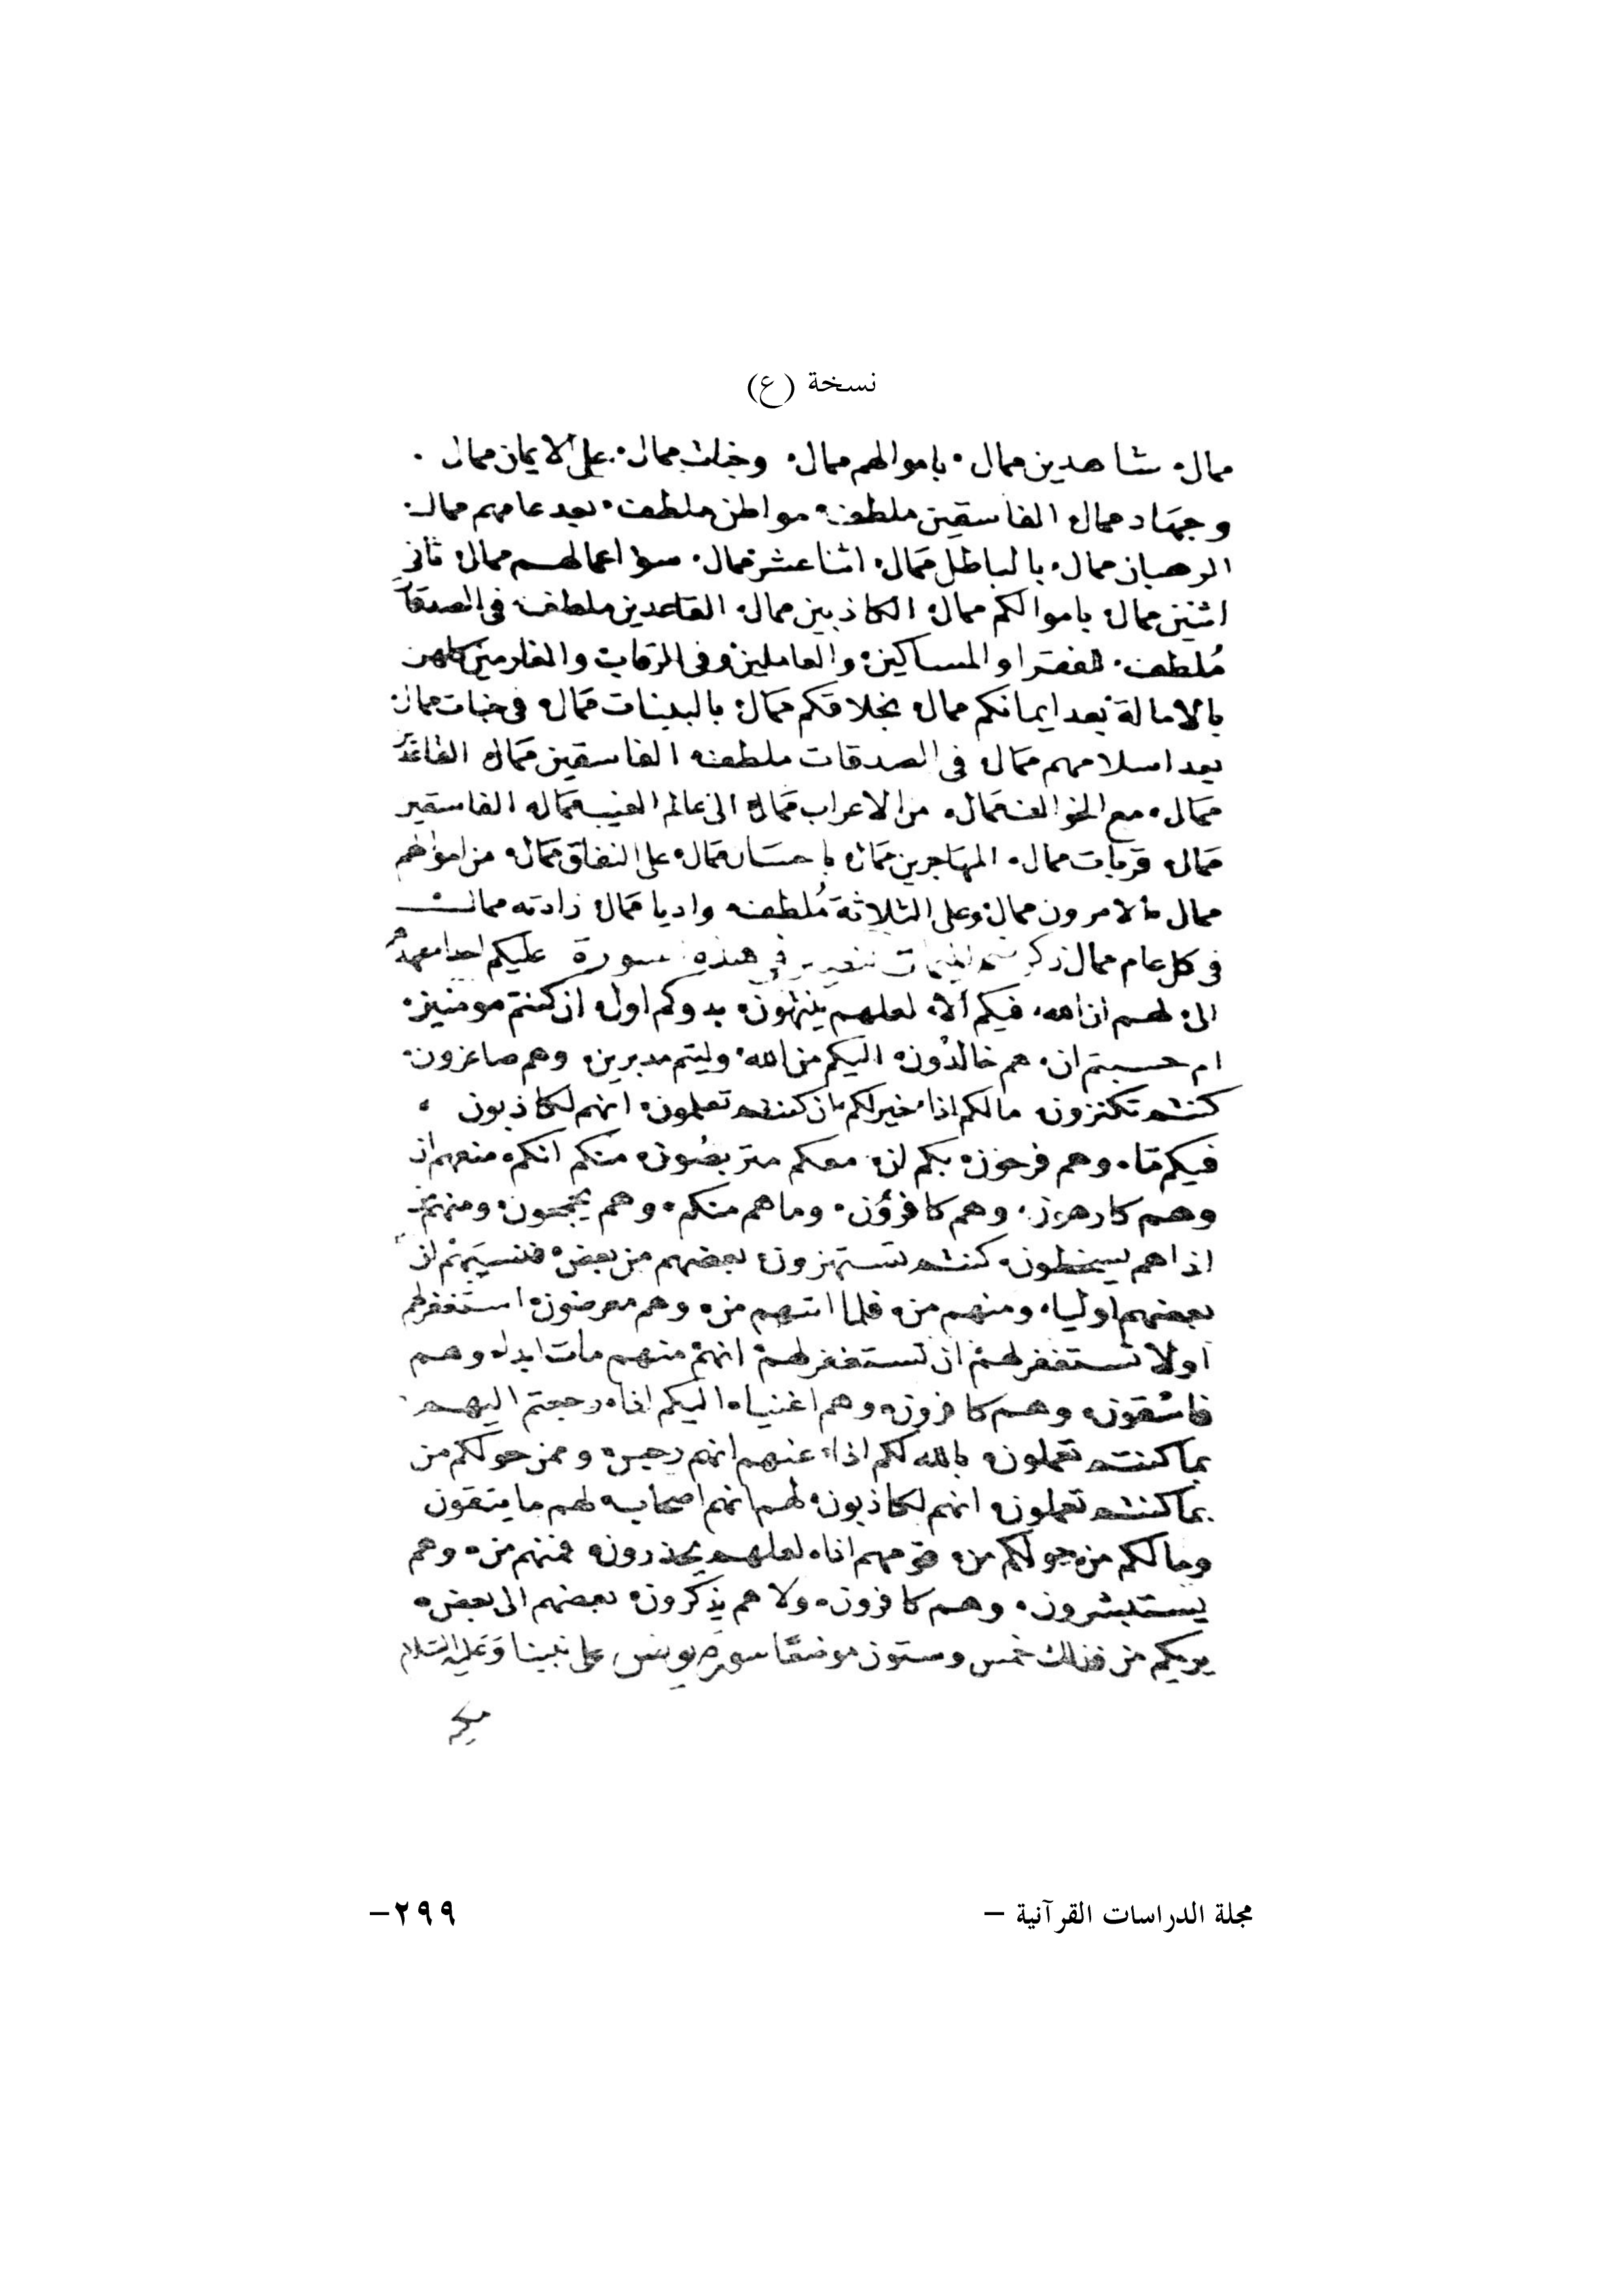 نسخة (ع)
ممال، شاهدين ممال، باموالهم ممال، وجنات ممال، على الايمان ممال.
وجهاد ممال الفاسقين ملطف، مواطن ملطف، بعد عامهم ممال،
الرهبان ممال، بالباطل ممال، اثنا عشر ممال، سؤ اعمالهم ممال، ثاني
اثنين ممال، باموالكم ممال، الكاذبين ممال، القاعدين ملطف، في الصدقات
مُلطف، للفقرا والمساكين، والعاملين، وفي الرقاب، والغارمين كلهن
بالامالة، بعد ايمانكم ممال، بخلاقكم ممال، بالبينات ممال، في جنات ممال،
بعد اسلامهم ممال، في الصدقات ملطفه الفاسقين ممال،
ممال، مع الخوالف ممال، من الاعراب ممال، الى عالم الغيب ممال، الفاسقين
ممال، قربات ممال، المهاجرين ممال، باحسان ممال، على النفاق ممال، من اموالهم
ممال، الامرون ممال، وعلى الثلاثة مُلطفه، واديا ممال، زادته ممال،
في كل عام ممال، ذكر في هذه سورة عليكم احدا
الى، لهم ان الله، فيكم الا، لعلهم ينتهون، بدوكم اول، ان كنتم مومنين،
ام حسبتم ان، هم خالدون، اليكم من الله، وليتم مدبرين، وهم صاغرون،
كنتم تكنزون، مالكم اذا، خير لكم ان كنتم تعلمون، انهم لكاذبون،
فيكم ما، وهم فرحون، بكم ان، معكم متربصون، منكم انكم، منعهم ان
وهم كارهون، وهم كافرون، وما هم منكم، وهم يجمحون، ومنهم من
اذا هم يسخطون، كنتم تستهزون، بعضهم من بعض، فنسيهم ان
بعضهم اوليا، ومنهم من، فلما اتيهم من، وهم معرضون، استغفر لهم
اولا تستغفر لهم ان تستغفر لهم، انهم، منهم مات ابدا، وهم
فاسقون، وهم كافرون، وهم اغنيا، اليكم اذا، رجعتم اليهم
بما كنتم تعملون، بالله لكم اذا، عنهم انهم رجس، وممن حولكم من
بما كنتم تعملون، انهم لكاذبون، لهم انهم اصحاب، لهم ما يتقون
وما لكم من، حولكم من، قومهم اذا، لعلهم يحذرون، فمنهم من، وهم
يستبشرون، وهم كافرون، ولا هم يذكرون، بعضهم الى بعض،
يريكم من فذلك خمس وستون موضعًا سورة يونس على نبينا وعليه السلام
مجلة الدراسات القرآنية –
٢٩٩–